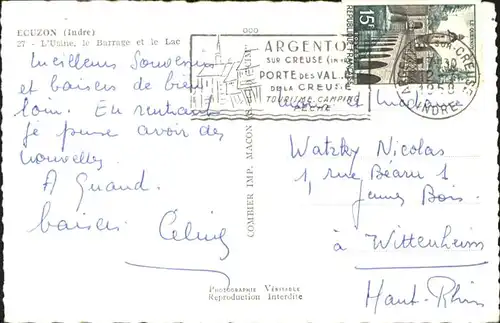 EGUZON (Indre)
27 - L'Usine, le Barrage et le Lac
Meilleurs Souvenirs
et baisers de bien
loin. En rentrant
je pense avoir des
nouvelles.
A Quand.
baisers Céline
COMBIER IMP. MACON
PHOTOGRAPHIE VÉRITABLE
Reproduction Interdite
ARGENTO
SUR CREUSE (INDRE)
PORTE DES VAL
DE LA CREUSE
TOURISME CAMPING
PÊCHE
15F
CREUSE
INDRE
Watzky Nicolas
1, rue Béarn 1
Jeunes Bois
à Wittenheim
Haut-Rhin